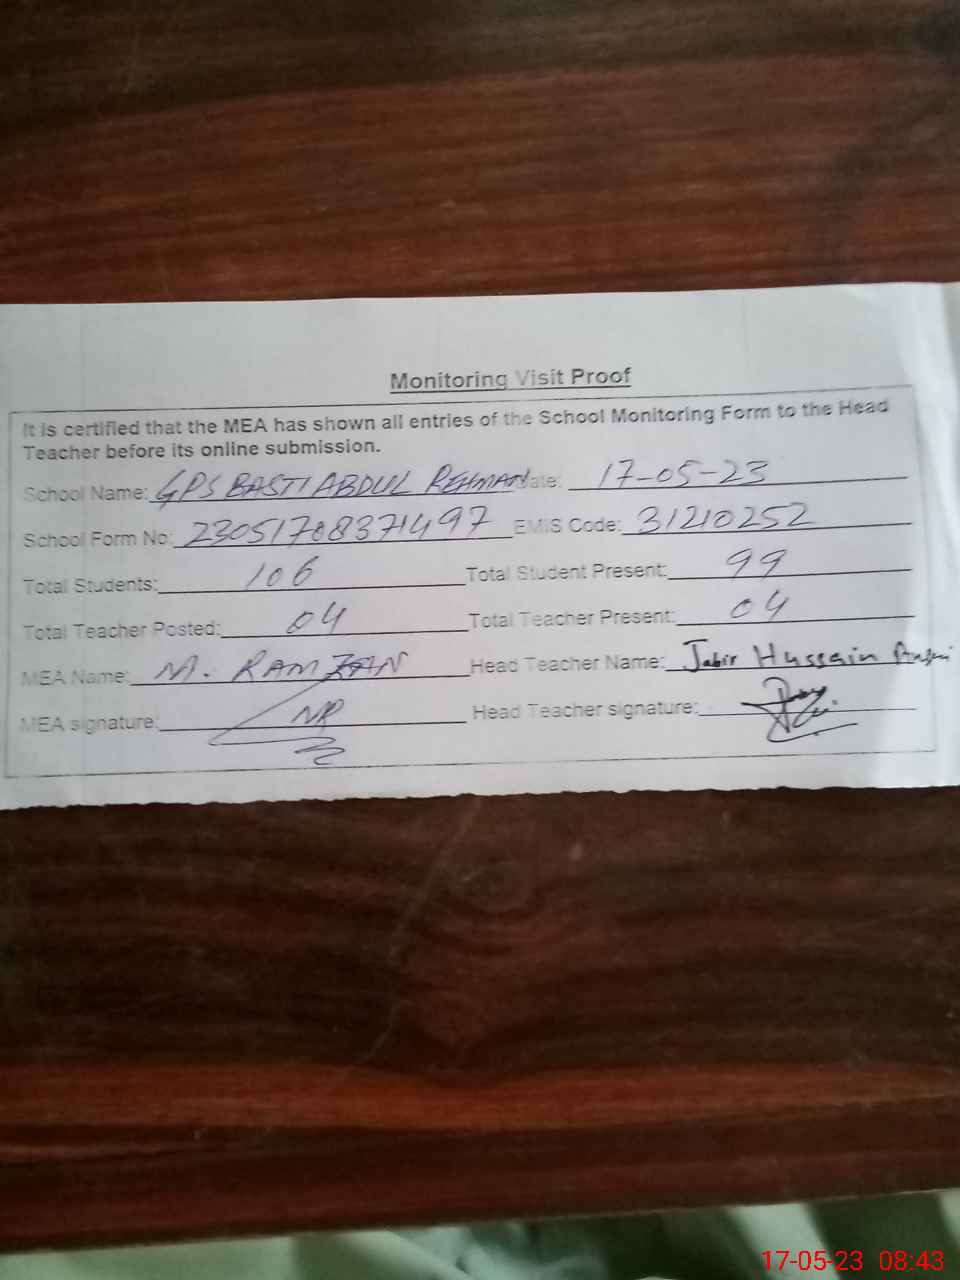 Monitoring Visit Proof
It is certified that the MEA has shown all entries of the School Monitoring Form to the Head
Teacher before its online submission.
School Name: GPS BASTI ABDUL REHMAN Date: 17-05-23
School Form No: 23051708371497 EMIS Code: 31210252
Total Students: 106 Total Student Present: 99
Total Teacher Posted: 04 Total Teacher Present: 04
MEA Name: M. RAMZAN Head Teacher Name: Jabir Hussain
MEA signature: Head Teacher signature:
17-05-23 08:43